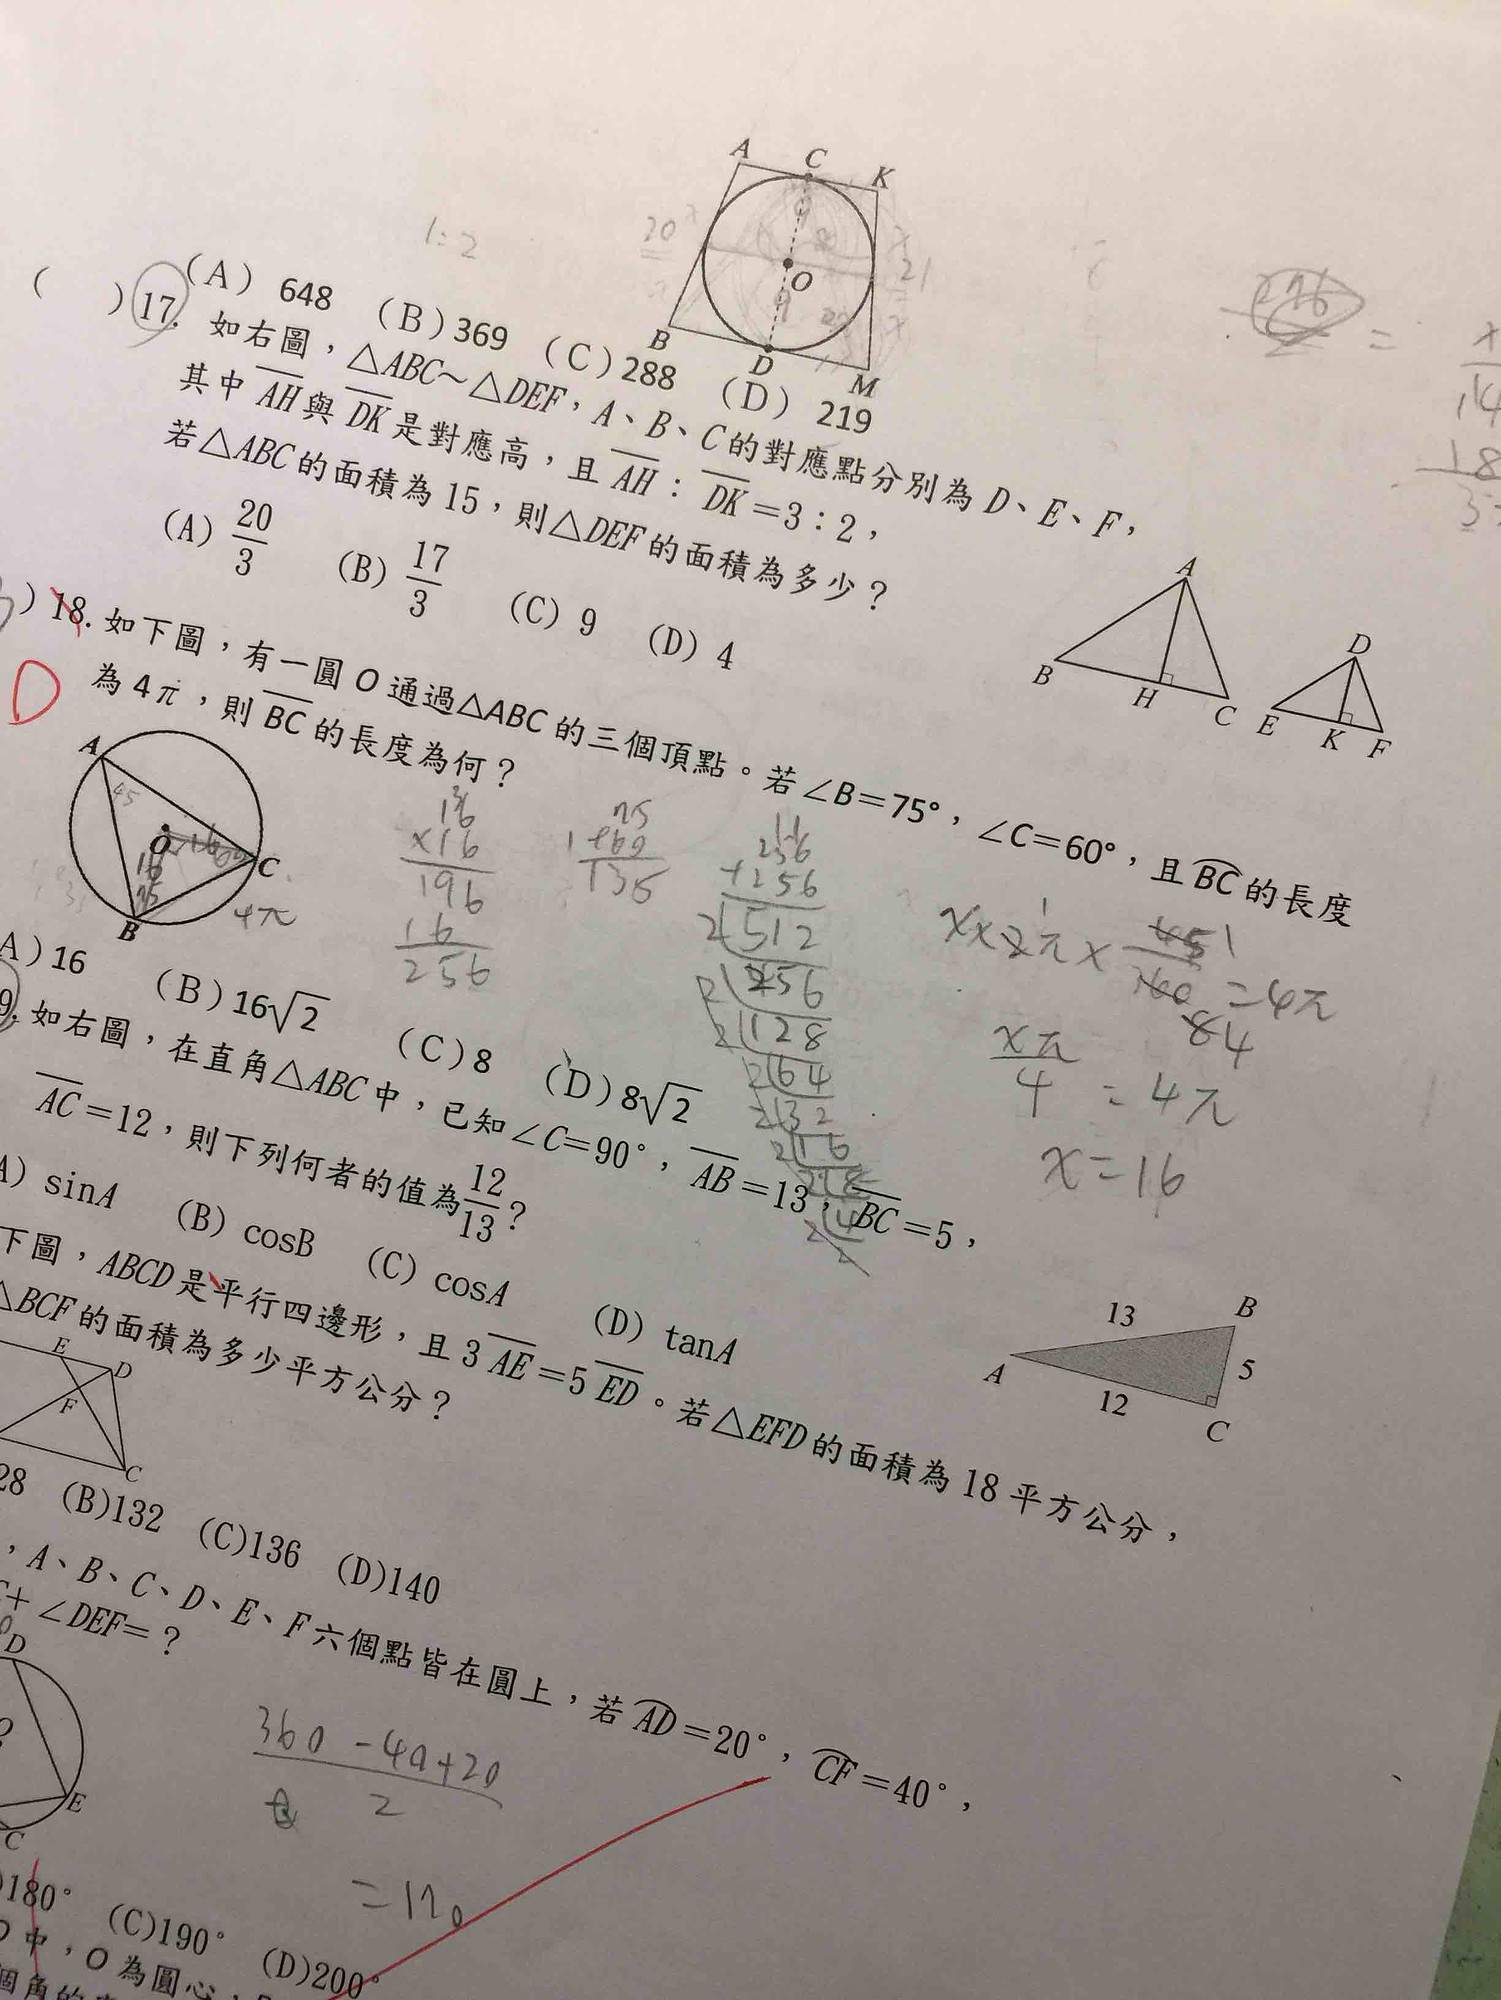 A C K
1:2
30
21
O
B D M
(A) 648 (B)369 (C)288 (D) 219
( )17. 如右圖，△ABC～△DEF，A、B、C的對應點分別為 D、E、F，
其中 AH與 DK是對應高，且 AH：DK＝3：2，
若△ABC的面積為15，則△DEF的面積為多少？
(A) 20/3 (B) 17/3 (C) 9 (D) 4
A
B H C
D
E K F
)18. 如下圖，有一圓 O 通過△ABC 的三個頂點。若∠B＝75°，∠C＝60°，且BC的長度
D
為 4π，則 BC 的長度為何？
A
45
O
16
C
B
4π
16
×16
196
16
256
75
+60
135
256
+256
2 512
2 256
2 128
2 64
2 32
2 16
2 8
2 4
2
xπ/4 = 4π
x=16
A)16 (B)16√2 (C)8 (D)8√2
9. 如右圖，在直角△ABC中，已知∠C＝90°，AB＝13，BC＝5，
AC＝12，則下列何者的值為12/13？
A) sinA (B) cosB (C) cosA (D) tanA
13 B
A 5
12 C
下圖，ABCD是平行四邊形，且 3AE＝5ED。若△EFD的面積為 18 平方公分，
△BCF的面積為多少平方公分？
E D
F
C
28 (B)132 (C)136 (D)140
，A、B、C、D、E、F六個點皆在圓上，若AD＝20°，CF＝40°，
＋∠DEF＝？
D
E
C
360 - 40+20
2
=170
)180° (C)190° (D)200°
中，O 為圓心，
個角的